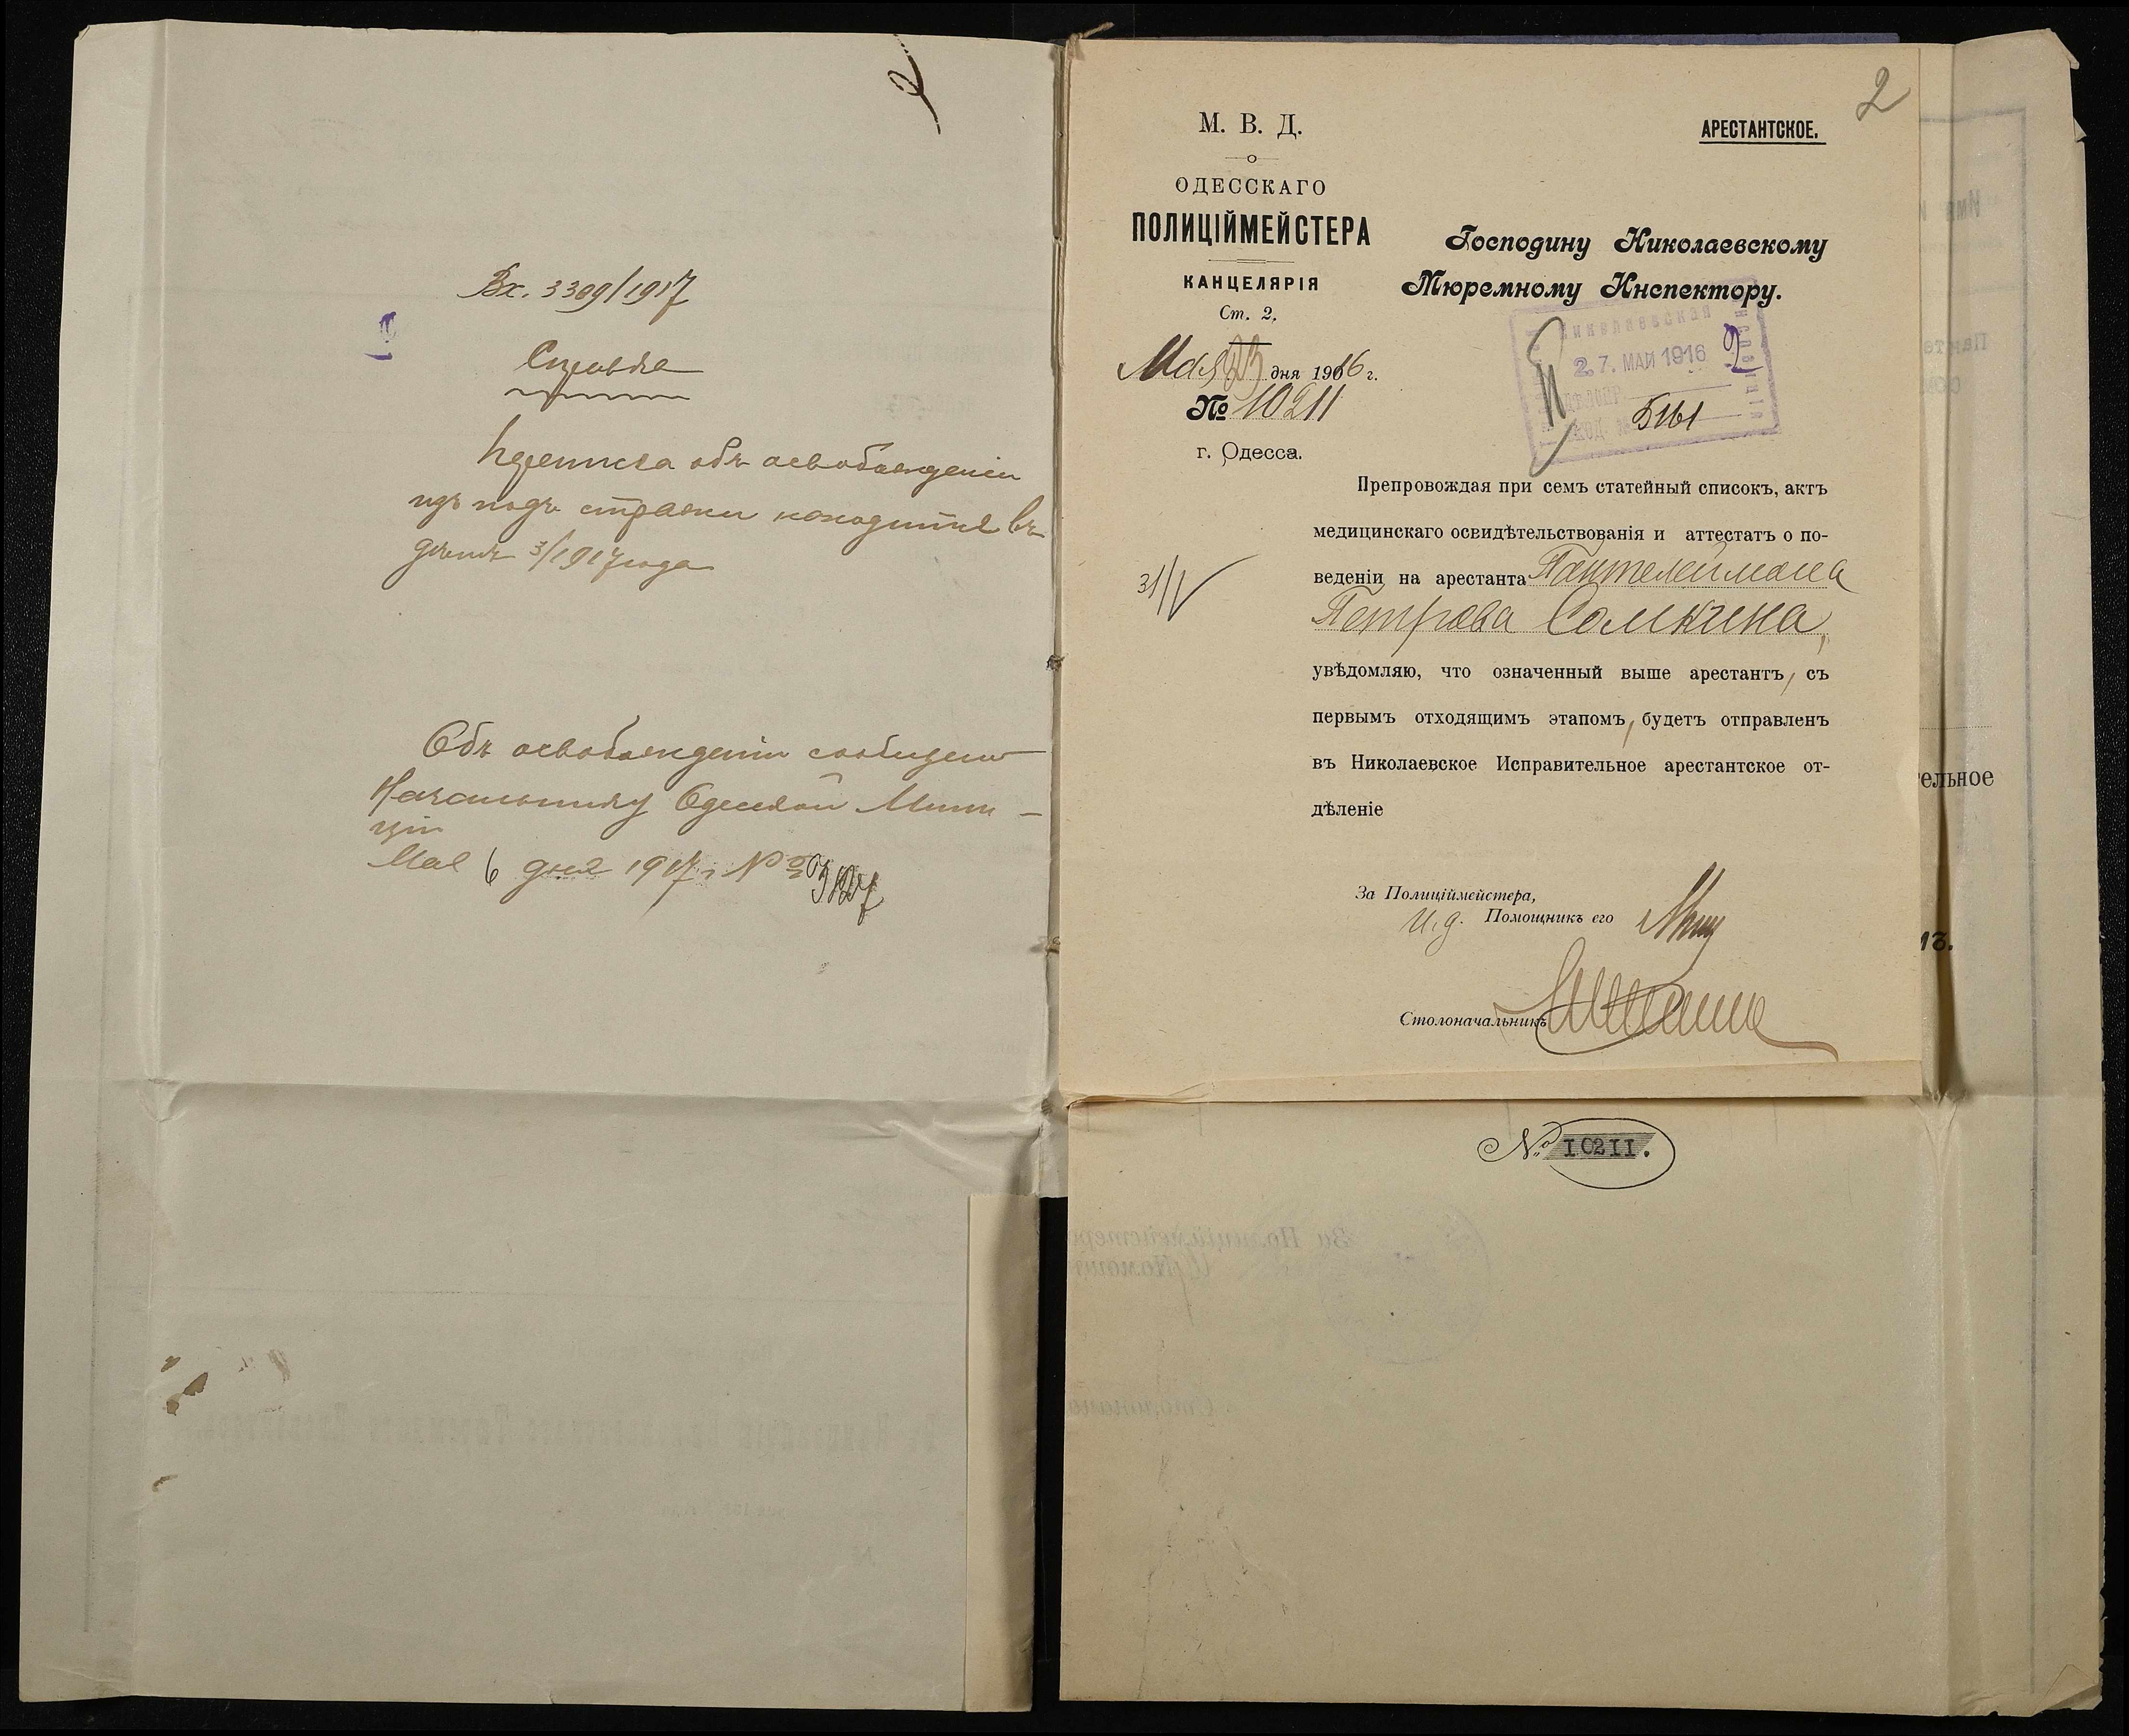 Вх. 3309/1917
Справка
Переписка объ освобожденіи
изъ подъ стражи находится въ
дѣлѣ 3/1917 года
Объ освобожденіи сообщено
Начальнику Одесской Мили-
ціи
Мая 6 дня 1917 г. №
2
АРЕСТАНТСКОЕ.
М. В. Д.
ОДЕССКАГО
ПОЛИЦІЙМЕЙСТЕРА
КАНЦЕЛЯРІЯ
Ст. 2.
Мая 23 дня 1916 г.
№ 10211
г. Одесса.
Господину Николаевскому
Тюремному Инспектору.
Николаевская
27. МАЙ 1916
5161
Препровождая при семъ статейный списокъ, актъ
медицинскаго освидѣтельствованія и аттестатъ о по-
веденіи на арестанта Пантелеймона
Петрова Сомкина,
увѣдомляю, что означенный выше арестантъ, съ
первымъ отходящимъ этапомъ, будетъ отправленъ
въ Николаевское Исправительное арестантское от-
дѣленіе
31/V
За Полиціймейстера,
И. д. Помощникъ его
Столоначальникъ
№ 10211.
тельное